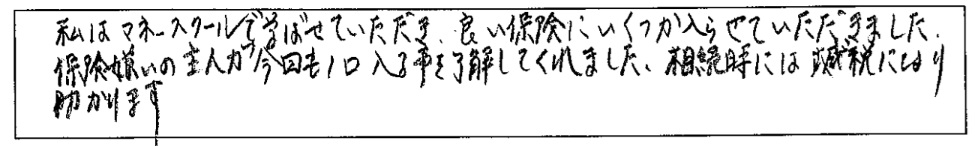 私はマネースクールで学ばせていただき、良い保険にいくつか入らせていただきました。
保険嫌いの主人が今回も1口入る事を了解してくれました、相続時には減税になり
助かります